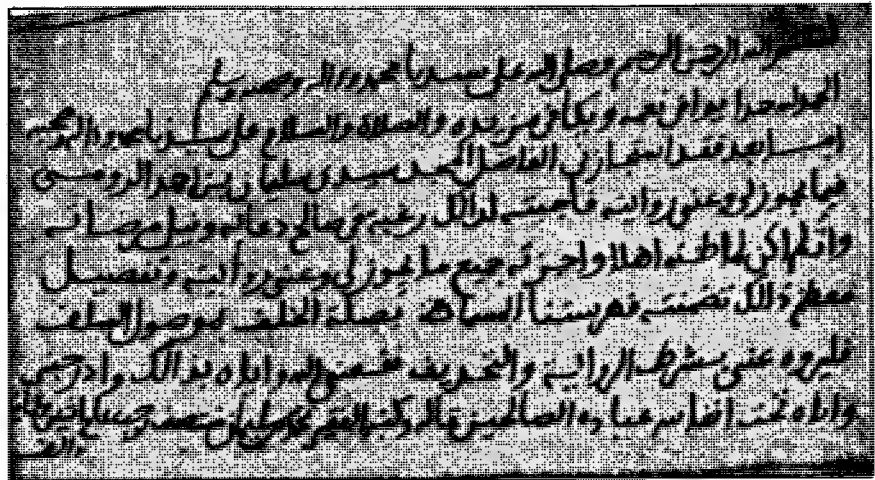 بسم الله الرحمن الرحيم وصلى الله على سيدنا محمد وءاله وصحبه وسلم
الحمد لله حمدا يوافي نعمه ويكافئ مزيده والصلاة والسلام على سيدنا محمد وءاله وصحبه
اما بعد فقد استجازني الفاضل المجيد سيدي سليمان بن احمد
فيما يجوز لي وعني روايته فاجبته لذالك رغبة في صالح دعائه ونيل مرضاته
وان لم اكن لما ظنه اهلا واجزته جميع ما يجوز لي وعني روايته وتفصيل
معظم ذالك تضمنته فهرستنا المسماة بصلة الخلف بموصول السلف
فليروه عني بشرط الرواية والتحديث نفعني الله واياه بذالك وادرجني
واياه تحت انفاس عباده الصالحين قاله وكتبه الفقير محمد بن سليمان
والف